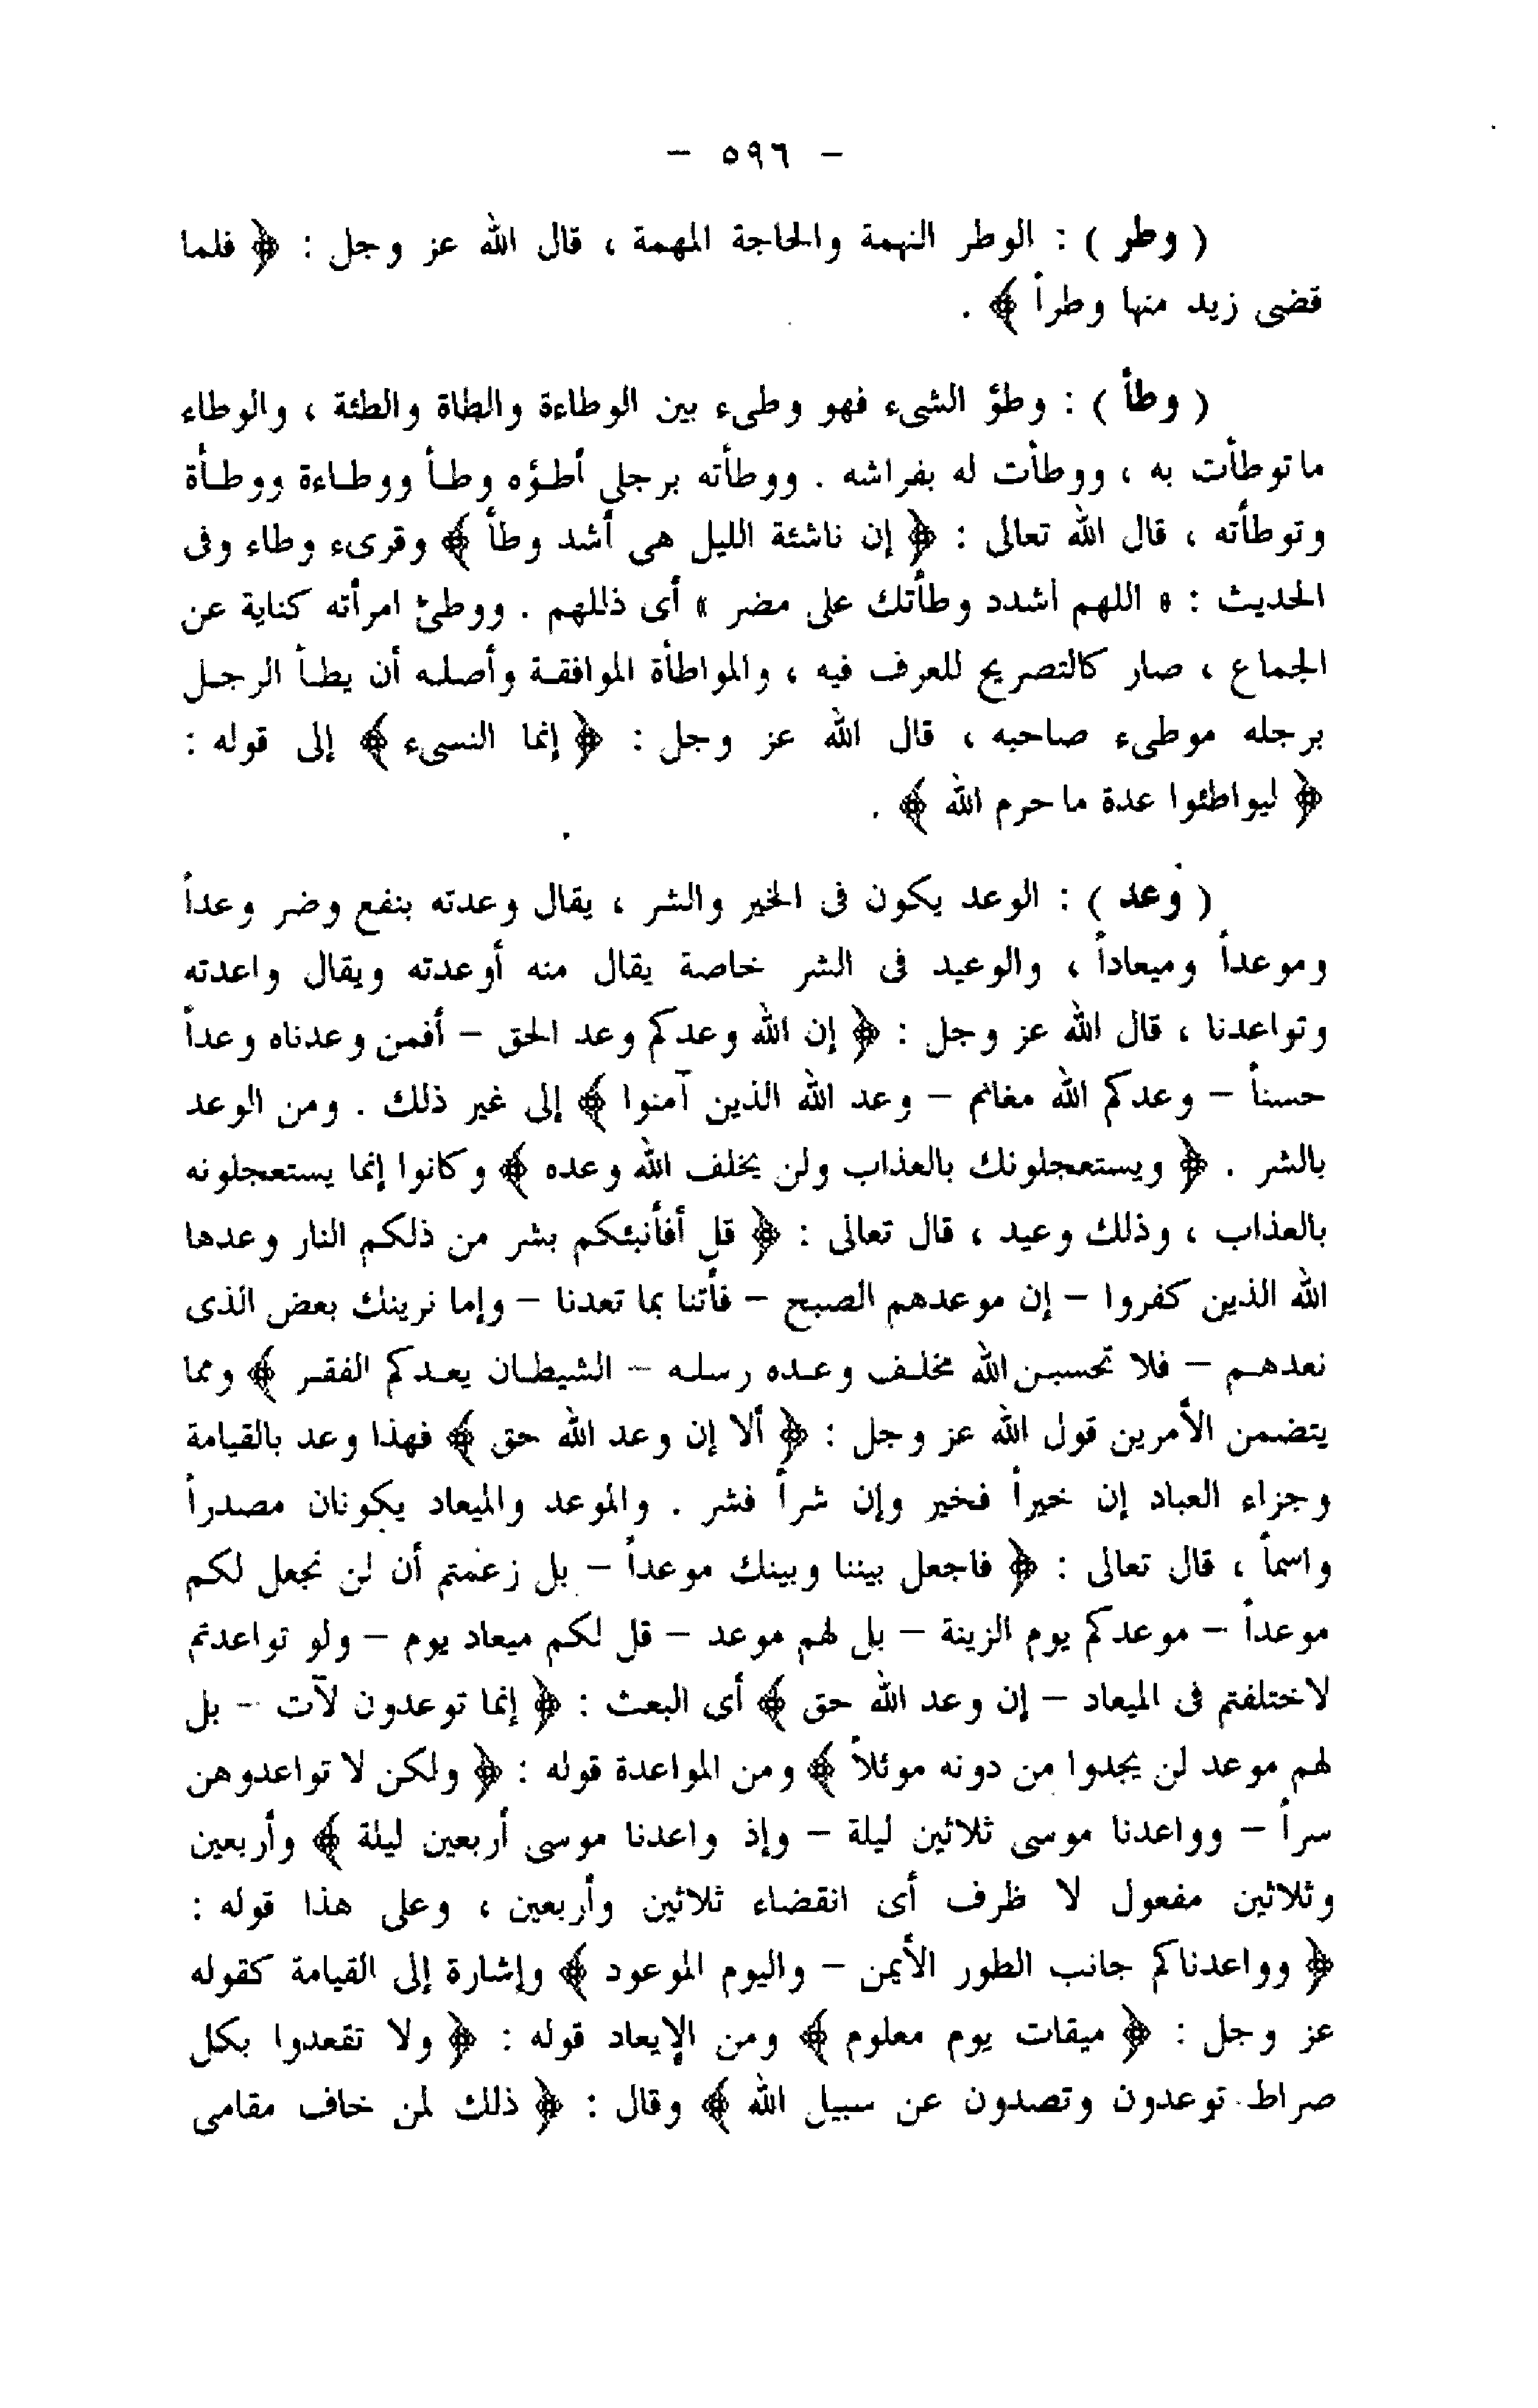 - ٥٩٦ -
( وطر ) : الوطر النهمة والحاجة المهمة ، قال الله عز وجل : ﴿ فلما
قضى زيد منها وطراً ﴾ .
( وطأ ) : وطؤ الشىء فهو وطىء بين الوطاءة والطاة والطئة ، والوطاء
ماتوطأت به ، ووطأت له بفراشه . ووطأته برجلى أطؤه وطأ ووطاءة ووطأة
وتوطأته ، قال الله تعالى : ﴿ إن ناشئة الليل هى أشد وطأ ﴾ وقرىء وطاء وفى
الحديث : « اللهم اشدد وطأتك على مضر » أى ذللهم . ووطئ امرأته كناية عن
الجماع ، صار كالتصريح للعرف فيه ، والمواطأة الموافقة وأصله أن يطأ الرجل
برجله موطىء صاحبه ، قال الله عز وجل : ﴿ إنما النسىء ﴾ إلى قوله :
﴿ ليواطئوا عدة ماحرم الله ﴾ .
( وعد ) : الوعد يكون فى الخير والشر ، يقال وعدته بنفع وضر وعداً
وموعداً وميعاداً ، والوعيد فى الشر خاصة يقال منه أوعدته ويقال واعدته
وتواعدنا ، قال الله عز وجل : ﴿ إن الله وعدكم وعد الحق - أفمن وعدناه وعداً
حسناً - وعدكم الله مغانم - وعد الله الذين آمنوا ﴾ إلى غير ذلك . ومن الوعد
بالشر . ﴿ ويستعجلونك بالعذاب ولن يخلف الله وعده ﴾ وكانوا إنما يستعجلونه
بالعذاب ، وذلك وعيد ، قال تعالى : ﴿ قل أفأنبئكم بشر من ذلكم النار وعدها
الله الذين كفروا - إن موعدهم الصبح - فأتنا بما تعدنا - وإما نرينك بعض الذى
نعدهم - فلا تحسبن الله مخلف وعده رسله - الشيطان يعدكم الفقر ﴾ ومما
يتضمن الأمرين قول الله عز وجل : ﴿ ألا إن وعد الله حق ﴾ فهذا وعد بالقيامة
وجزاء العباد إن خيراً فخير وإن شراً فشر . والموعد والميعاد يكونان مصدراً
واسماً ، قال تعالى : ﴿ فاجعل بيننا وبينك موعداً - بل زعمتم أن لن نجعل لكم
موعداً - موعدكم يوم الزينة - بل لهم موعد - قل لكم ميعاد يوم - ولو تواعدتم
لاختلفتم فى الميعاد - إن وعد الله حق ﴾ أى البعث : ﴿ إنما توعدون لآت - بل
لهم موعد لن يجدوا من دونه موئلاً ﴾ ومن المواعدة قوله : ﴿ ولكن لا تواعدوهن
سراً - وواعدنا موسى ثلاثين ليلة - وإذ واعدنا موسى أربعين ليلة ﴾ وأربعين
وثلاثين مفعول لا ظرف أى انقضاء ثلاثين وأربعين ، وعلى هذا قوله :
﴿ وواعدناكم جانب الطور الأيمن - واليوم الموعود ﴾ وإشارة إلى القيامة كقوله
عز وجل : ﴿ ميقات يوم معلوم ﴾ ومن الإيعاد قوله : ﴿ ولا تقعدوا بكل
صراط توعدون وتصدون عن سبيل الله ﴾ وقال : ﴿ ذلك لمن خاف مقامى